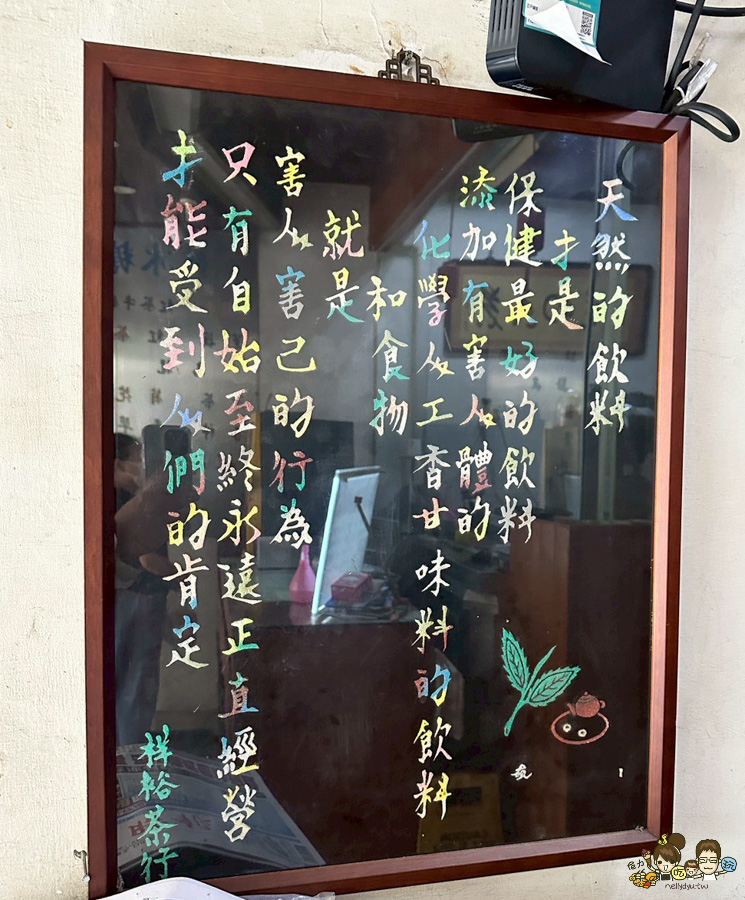 天然的飲料
才是
保健最好的飲料
漆加有害人體的
化學人工香甘味料的飲料
和食物
就是
害人害己的行為
只有自始至終永遠正直經營
才能受到人們的肯定
祥裕茶行
nellydyu.tw